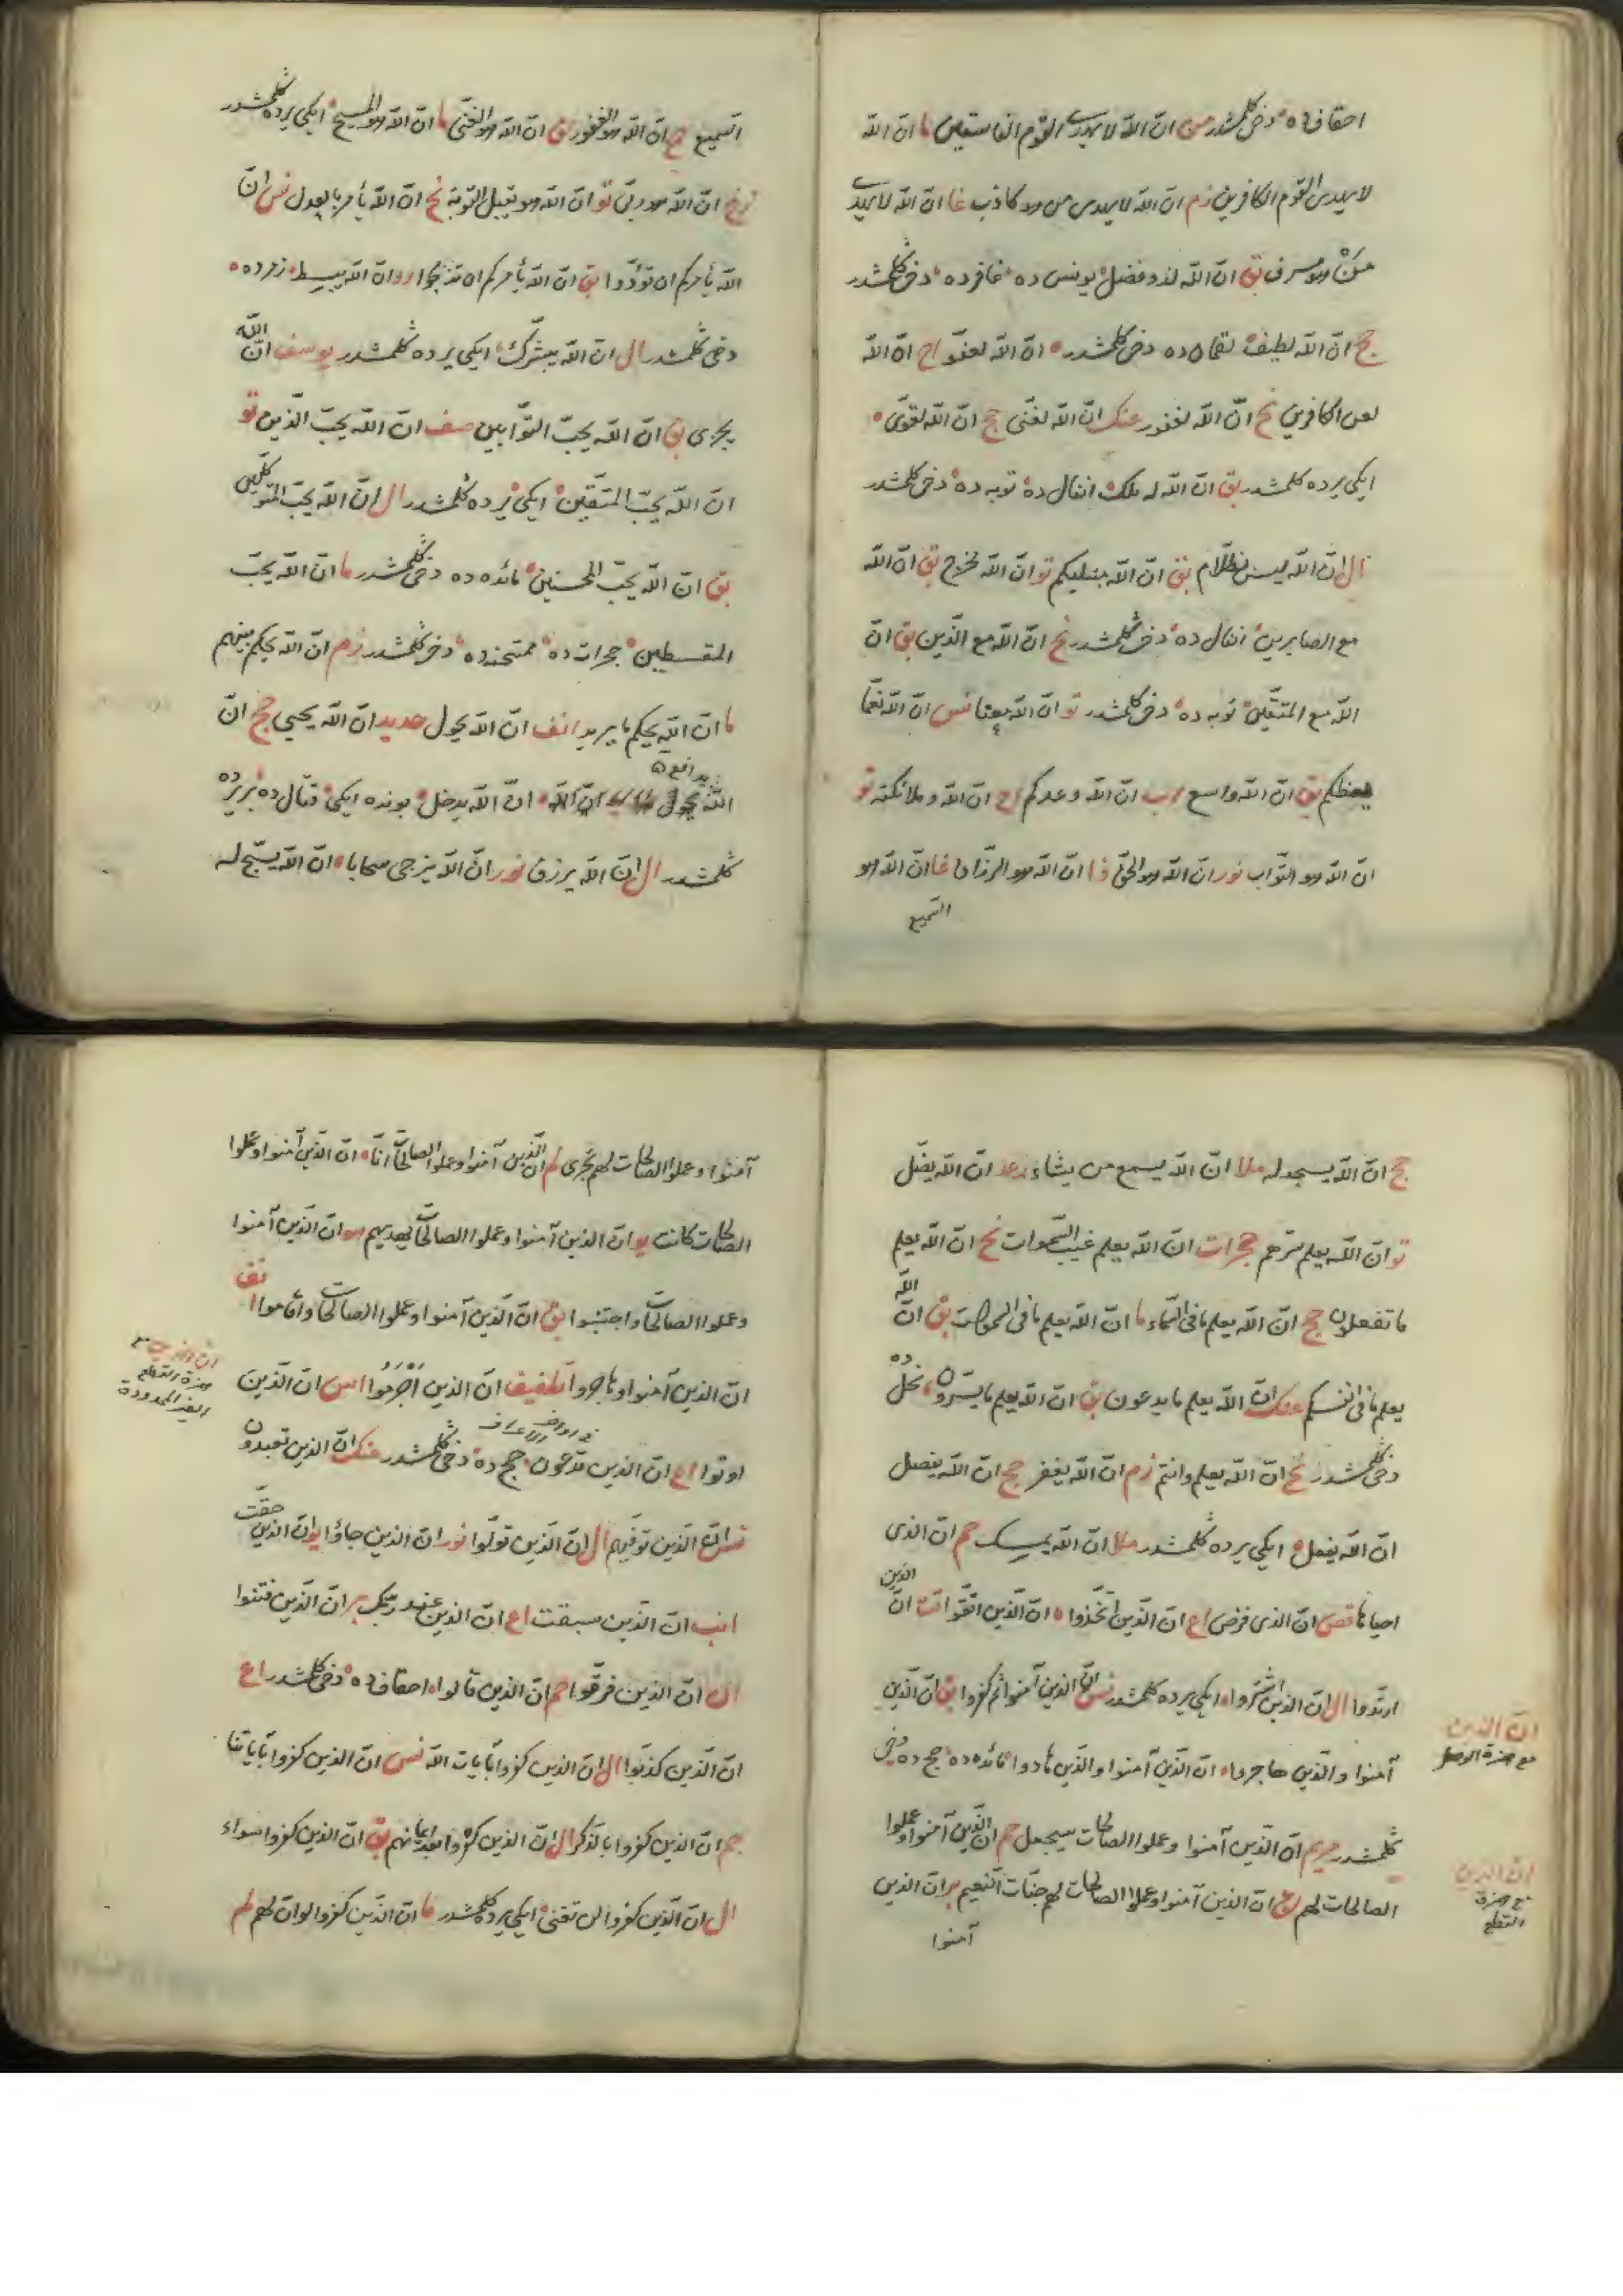 احقاف ده ° دخی كلمشدر من ان الله لا يهدى القوم الفاسقين ما ان الله
لا يهدى القوم الكافرين زم ان الله لا يهدى من هو كاذب غا ان الله لا يهدى
من هو مسرف بق ان الله لذو فضل° يونس ده° غافر ده° دخی كلمشدر
حج ان الله لطيف° لقمان ده دخی كلمشدر ° ان الله لعفو اح ان الله
لعن الكافرين نح ان الله لغفور عنك ان الله لغنى حج ان الله لقوى °
ايكى يرده كلمشدر بق ان الله له ملك° انفال ده° توبه ده° دخی كلمشدر
ال ان الله ليس بظلام بق ان الله مبتليكم تو ان الله مخرج بق ان الله
مع الصابرين° انفال ده° دخی كلمشدر نح ان الله مع الذين بق ان
الله مع المتقين° توبه ده° دخی كلمشدر تو ان الله معنا نس ان الله نعما
يعظكم بق ان الله واسع اب ان الله وعدكم اح ان الله وملائكته تو
ان الله هو التواب نور ان الله هو الحق ذا ان الله هو الرزاق غا ان الله هو
السميع
السميع حج ان الله هو الغفور لق ان الله هو الغنى ما ان الله هو المسيح° ايكى يرده كلمشدر
زخ ان الله هو ربى تو ان الله هو يقبل التوبة نح ان الله يأمر بالعدل نس ان
الله يأمركم ان تؤدوا بق ان الله يأمركم ان تذبحوا ان الله يبسط° زمر ده °
دخی كلمشدر ال ان الله يبشرك° ايكى يرده كلمشدر يوسف ان الله
يجزى بق ان الله يحب التوابين صف ان الله يحب الذين تو
ان الله يحب المتقين° ايكى يرده كلمشدر ال ان الله يحب المتوكلين
بق ان الله يحب المحسنين° مائده ده دخی كلمشدر ما ان الله يحب
المقسطين° حجرات ده° ممتحنه ده° دخی كلمشدر زم ان الله يحكم بينهم
ما ان الله يحكم ما يريد انف ان الله يحول حديد ان الله يحيى حج ان
يدافع °
الله ان الله ° ان الله يدخل° بونده ايكى° قتال ده° بر يرده
كلمشدر ال ان الله يرزق نور ان الله يزجى سحابا ° ان الله يسبح له
حج ان الله يسجد له ملا ان الله يسمع من يشاء رعد ان الله يضل
تو ان الله يعلم سرهم حجرات ان الله يعلم غيب السموات نح ان الله يعلم
ما تفعلون حج ان الله يعلم ما فى السماء ما ان الله يعلم ما فى السموات بق ان الله
يعلم ما فى انفسكم عنك ان الله يعلم ما يدعون بق ان الله يعلم ما يسرون° نحل ده
دخی كلمشدر نح ان الله يعلم وانتم زم ان الله يغفر حج ان الله يفصل
ان الله يفعل° ايكى يرده كلمشدر ملا ان الله يمسك حم ان الذى
احياها قصص ان الذى فرض اع ان الذين اتخذوا ° ان الذين اتقوا قت ان الذين
ارتدوا ال ان الذين اشتروا° ايكى يرده كلمشدر نس ان الذين آمنوا ثم كفروا بق ان الذين
آمنوا والذين هاجروا° ان الذين آمنوا والذين هادوا° مائده ده° حج ده دخی
كلمشدر مريم ان الذين آمنوا وعملوا الصالحات سيجعل حم ان الذين آمنوا وعملوا
الصالحات لهم لق ان الذين آمنوا وعملوا الصالحات لهم جنات النعيم بر ان الذين
آمنوا
ان الذين
مع همزة الوصل
ان الذين
مع همزة
القطع
آمنوا وعملوا الصالحات لهم تجرى كه ان الذين آمنوا وعملوا الصالحات انا ° ان الذين آمنوا وعملوا
الصالحات كانت يو ان الذين آمنوا وعملوا الصالحات يهديهم هو ان الذين آمنوا
وعملوا الصالحات واخبتوا بق ان الذين آمنوا وعملوا الصالحات واقاموا انف
ان الذين آمنوا وهاجروا تطفيف ان الذين اجرموا اس ان الذين
اوتوا اع ان الذين تدعون° حج ده° دخی كلمشدر عنك ان الذين تعبدون
نس ان الذين توفيهم ال ان الذين تولوا نور ان الذين جاؤا يو ان الذين حقت
انب ان الذين سبقت اع ان الذين عند ربك بر ان الذين فتنوا
ان ان الذين فرقوا حم ان الذين قالوا° احقاف ده° دخی كلمشدر اع
ان الذين كذبوا ال ان الذين كفروا بآيات الله نس ان الذين كفروا بآياتنا
حم ان الذين كفروا بالذكر ال ان الذين كفروا بعد ايمانهم بق ان الذين كفروا سواء
ال ان الذين كفروا لن تغنى° ايكى يرده كلمشدر ما ان الذين كفروا لو ان لهم
ان الذين مع
همزة القطع
الغير الممدودة